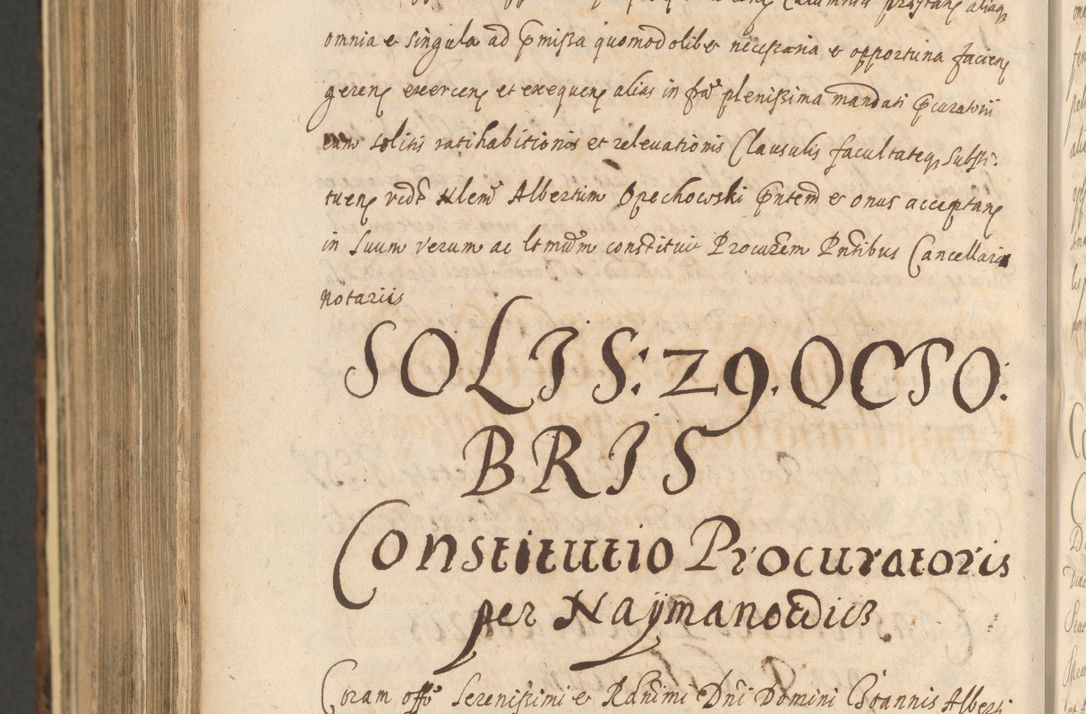 omnia e singula ad p̄missa quomodolibet necessaria e opportuna facien̄
geren̄ exercen̄ et exequen̄ alias in fr̄a plenissima mandati p̄curatorii
cum solitis ratihabitionis et relevationis Clausulis facultateq̨ Substi:
tuen̄ vid̄t Nlem̄ Albertum Opechowski p̄ntem e onus acceptan̄
in Suum verum ac ltmūm constituit Procurēm Pn̄tibus Cancellariæ
notariis
SOLIS: 29. OCTO:
BRIS
Constitutio Procuratoris
per Naÿmanowicz
Coram offō Serenissimi e Rdn̄imi Dn̄i Domini Joannis Alberti